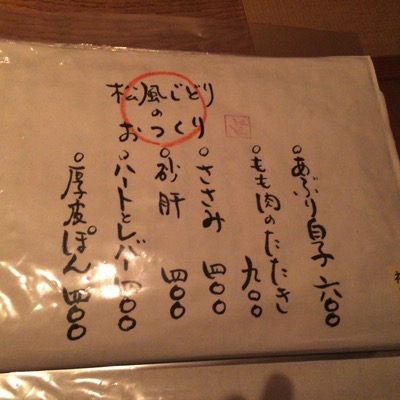 松風じどり
の
おつくり
○あぶり白子 六〇〇
○もも肉のたたき 九〇〇
○ささみ 四〇〇
○砂肝 四〇〇
○ハートとレバー 四〇〇
○厚皮ぽん 四〇〇